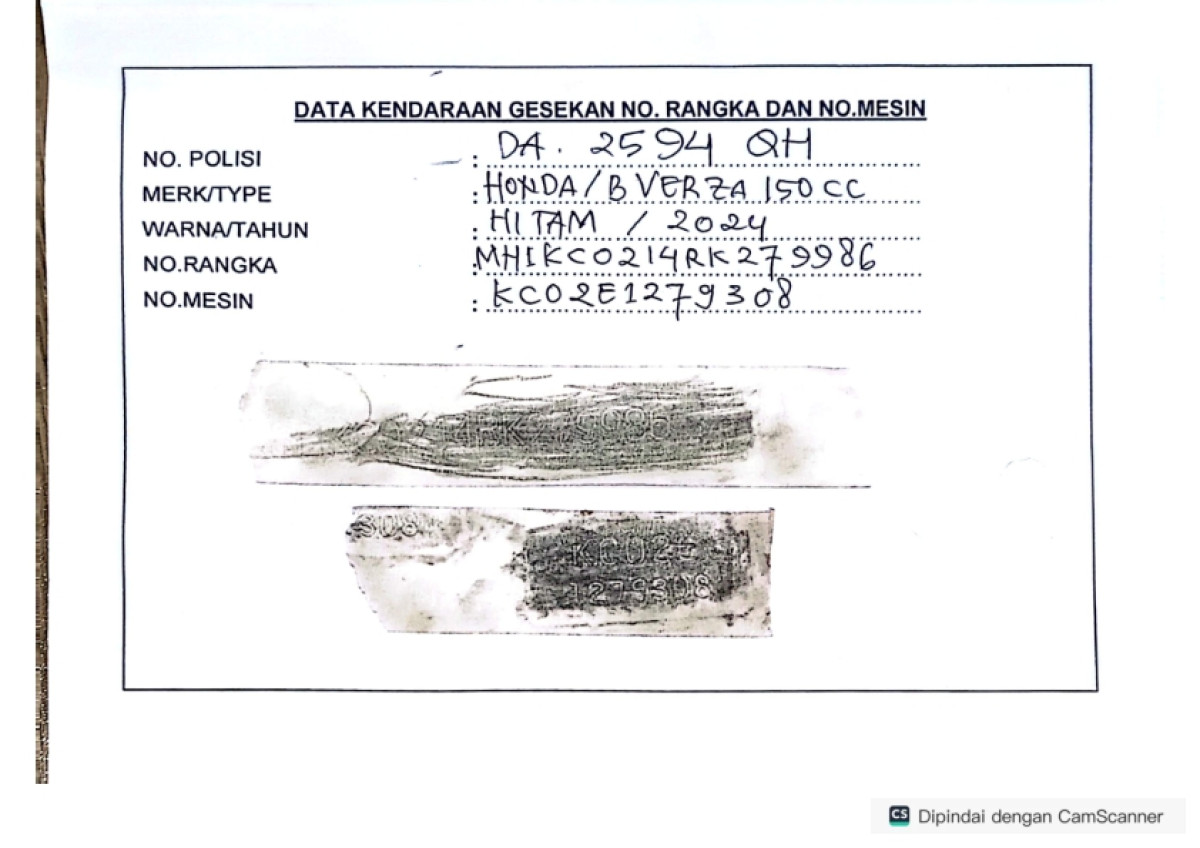 DATA KENDARAAN GESEKAN NO. RANGKA DAN NO.MESIN
NO. POLISI : DA. 2594 QH
MERK/TYPE : HONDA/B VERZA 150 CC
WARNA/TAHUN : HITAM / 2024
NO.RANGKA : MHIKC0214RK279986
NO.MESIN : KC02E1279308
308
KC02E
1279308
CS Dipindai dengan CamScanner